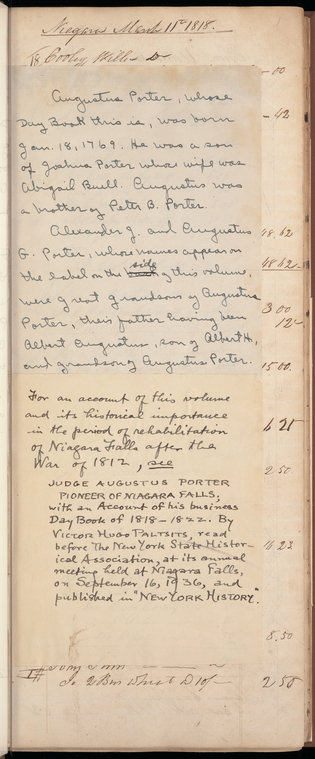 Niagara March 11th 1818.
To Cooley Mills Dr
-00
Augustus Porter, whose
Day Book this is, was born
-42
Jan. 18, 1769. He was a son
of Joshua Porter whose wife was
Abigail Buell. Augustus was
a brother of Peter B. Porter.
Alexander J. and Augustus
48.62
G. Porter, whose names appear on
the label on the side of this volume,
48 62
were great grandsons of Augustus
Porter, their father having been
3 00
12
Albert Augustus, son of Albert H.,
and grandson of Augustus Porter.
15 00.
For an account of this volume
and its historical importance
in the period of rehabilitation
of Niagara Falls after the
War of 1812, see
2 50
JUDGE AUGUSTUS PORTER
PIONEER OF NIAGARA FALLS,
with an Account of his business
Day Book of 1818-1822. By
VICTOR HUGO PALTSITS, read
before The New York State Histor-
ical Association, at its annual
meeting held at Niagara Falls,
on September 16, 1936, and
published in "NEW YORK HISTORY".
8.50
To 2 Bus Wheat D 10/-
2 50